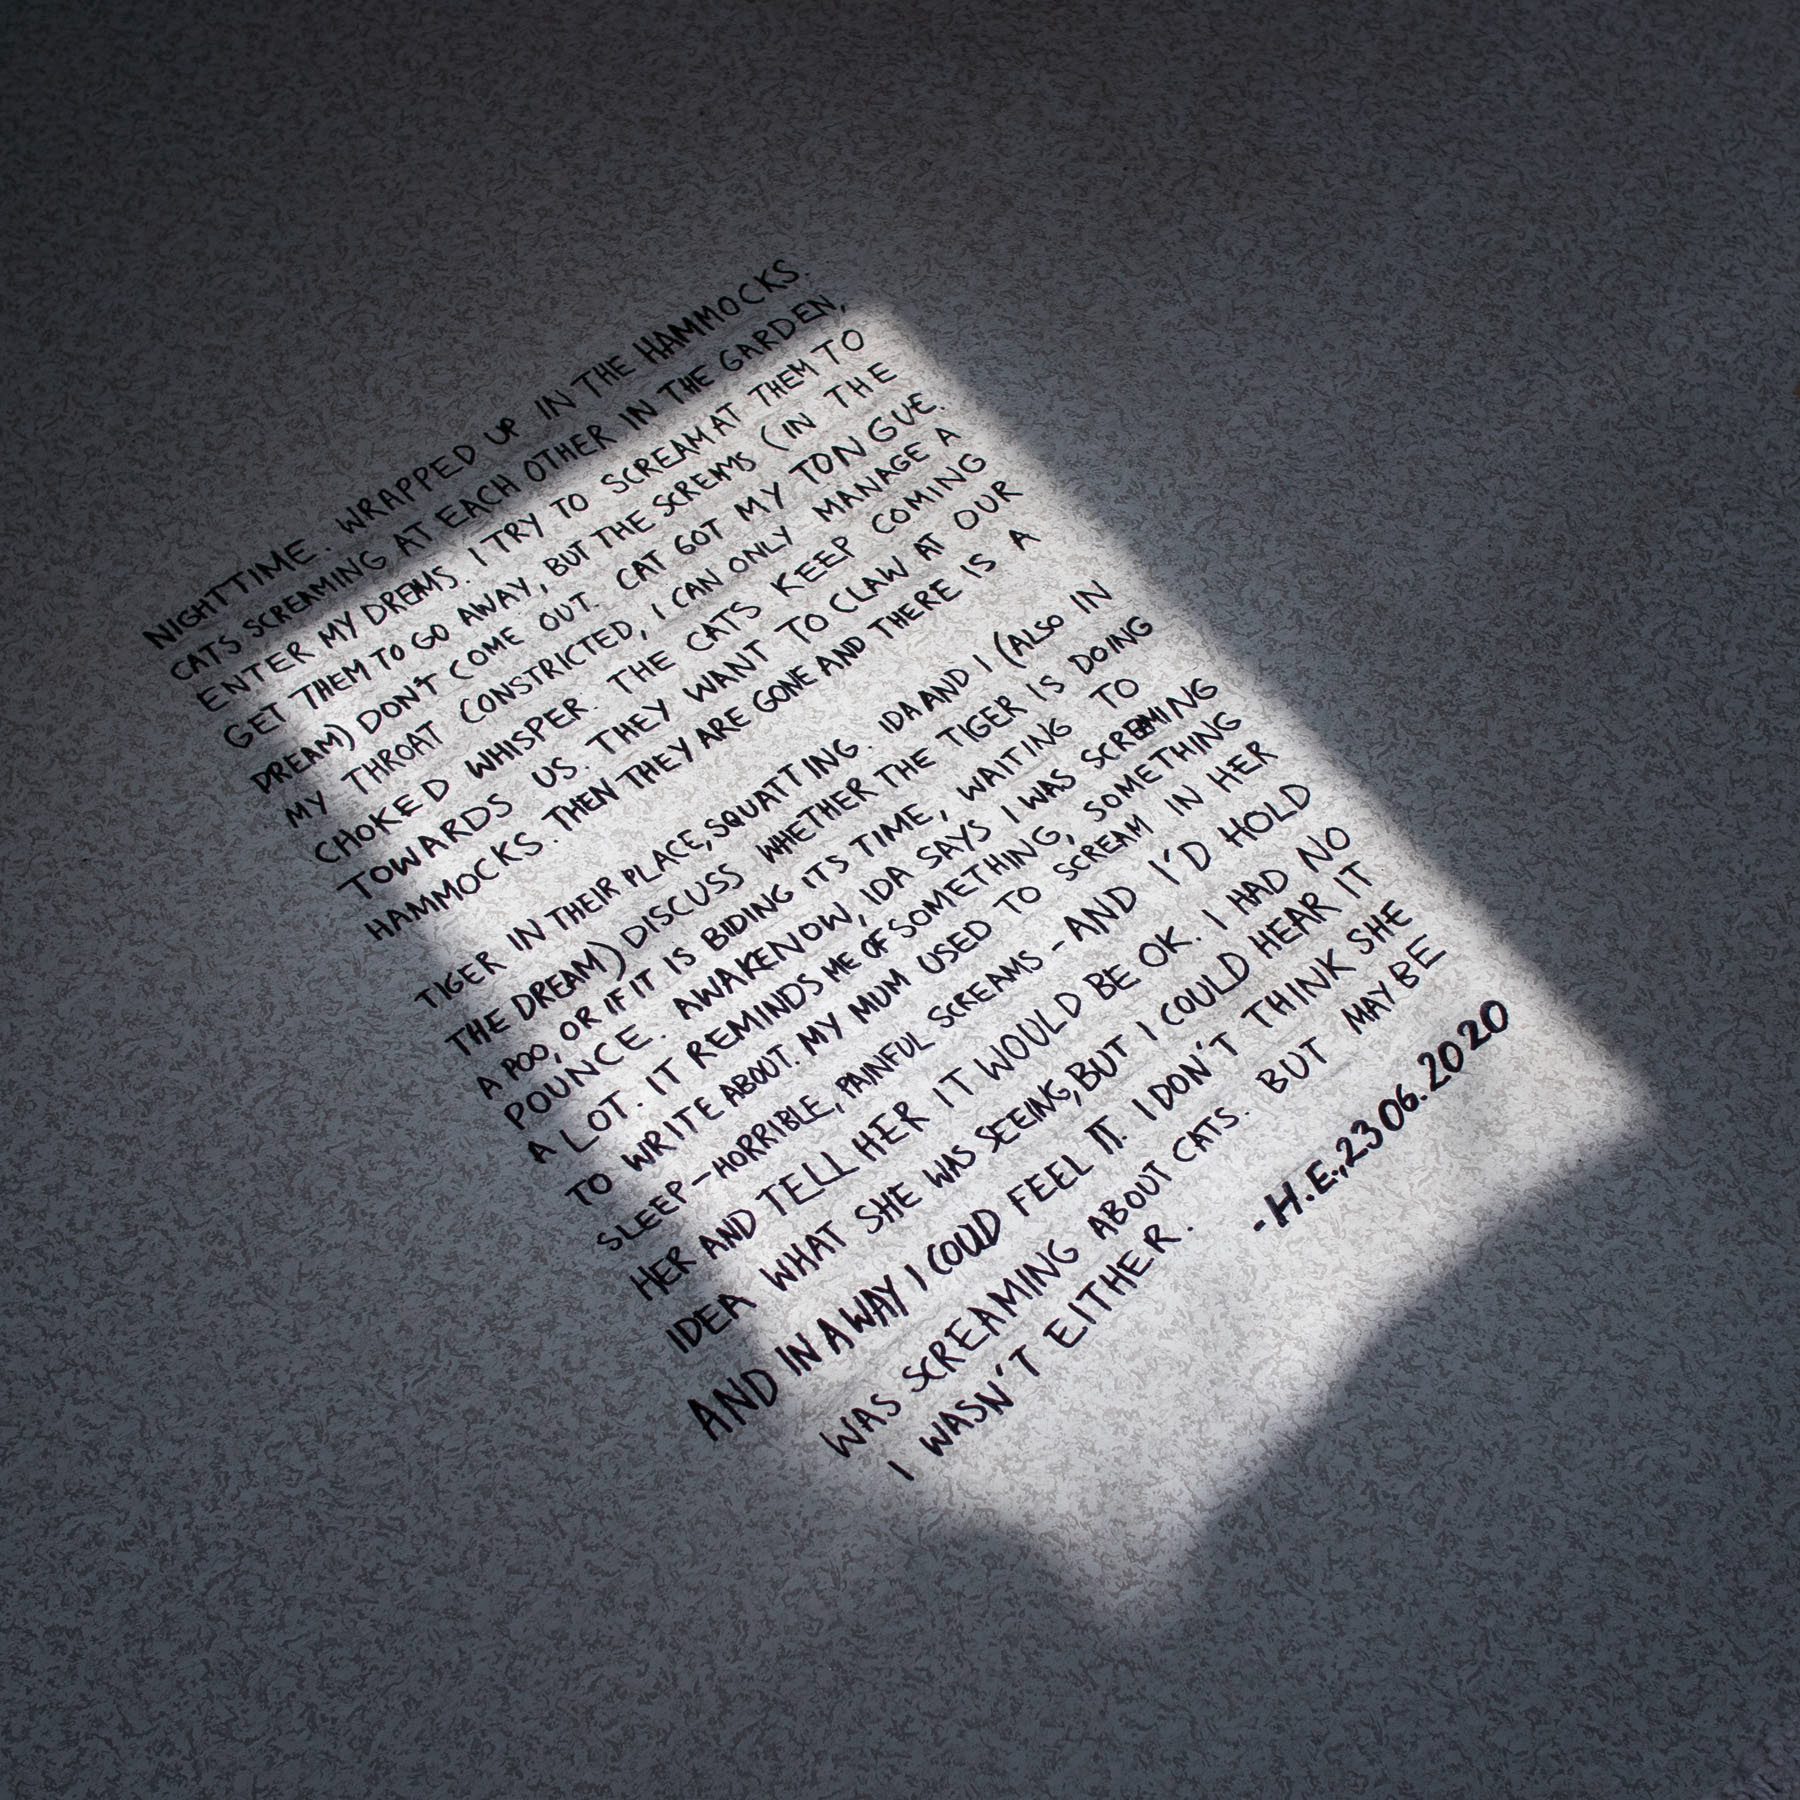 NIGHTTIME. WRAPPED UP IN THE HAMMOCKS.
CATS SCREAMING AT EACH OTHER IN THE GARDEN,
ENTER MY DREAMS. I TRY TO SCREAM AT THEM TO
GET THEM TO GO AWAY, BUT THE SCREAMS (IN THE
DREAM) DON'T COME OUT. CAT GOT MY TONGUE.
MY THROAT CONSTRICTED, I CAN ONLY MANAGE A
CHOKED WHISPER. THE CATS KEEP COMING
TOWARDS US. THEY WANT TO CLAW AT OUR
HAMMOCKS. THEN THEY ARE GONE AND THERE IS A
TIGER IN THEIR PLACE, SQUATTING. IDA AND I (ALSO IN
THE DREAM) DISCUSS WHETHER THE TIGER IS DOING
A POO, OR IF IT IS BIDING ITS TIME, WAITING TO
POUNCE. AWAKE NOW, IDA SAYS I WAS SCREAMING
A LOT. IT REMINDS ME OF SOMETHING, SOMETHING
TO WRITE ABOUT. MY MUM USED TO SCREAM IN HER
SLEEP - HORRIBLE, PAINFUL SCREAMS - AND I'D HOLD
HER AND TELL HER IT WOULD BE OK. I HAD NO
IDEA WHAT SHE WAS SEEING, BUT I COULD HEAR IT
AND IN A WAY I COULD FEEL IT. I DON'T THINK SHE
WAS SCREAMING ABOUT CATS. BUT MAY BE
I WASN'T EITHER.
- H.E., 23 06. 2020